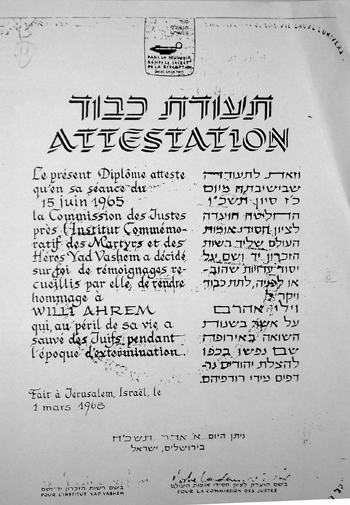 DANS LE SOUVENIR
RÉSIDE LE SECRET
DE LA RÉDEMPTION
תעודת כבוד
ATTESTATION
Le présent Diplôme atteste
qu'en sa séance du
15 juin 1965
la Commission des Justes
près l'Institut Commémo-
ratif des Martyrs et des
Héros Yad Vashem a décidé
sur foi de témoignages re-
cueillis par elle, de rendre
hommage à
WILLI AHREM
qui, au péril de sa vie, a
sauvé des Juifs pendant
l'époque d'extermination.
Fait à Jerusalem, Israël, le
1 mars 1968
וזאת לתעודה
שבישיבתה מיום
הועדה
לציון חסידי אומות
העולם שליד רשות
הזכרון יד ושם על
יסוד עדויות שהוב-
או לפניה, לתת כבוד
ויקר ל
וילי אהרם
על אשר בשנות
השואה באירופה
שם נפשו בכפו
להצלת יהודים נר-
דפים מידי רודפיהם.
ניתן היום א אדר תשכ"ח
בירושלים, ישראל
בשם רשות הזכרון יד ושם
POUR L'INSTITUT YAD VASHEM
בשם הועדה לציון חסידי אומות העולם
POUR LA COMMISSION DES JUSTES